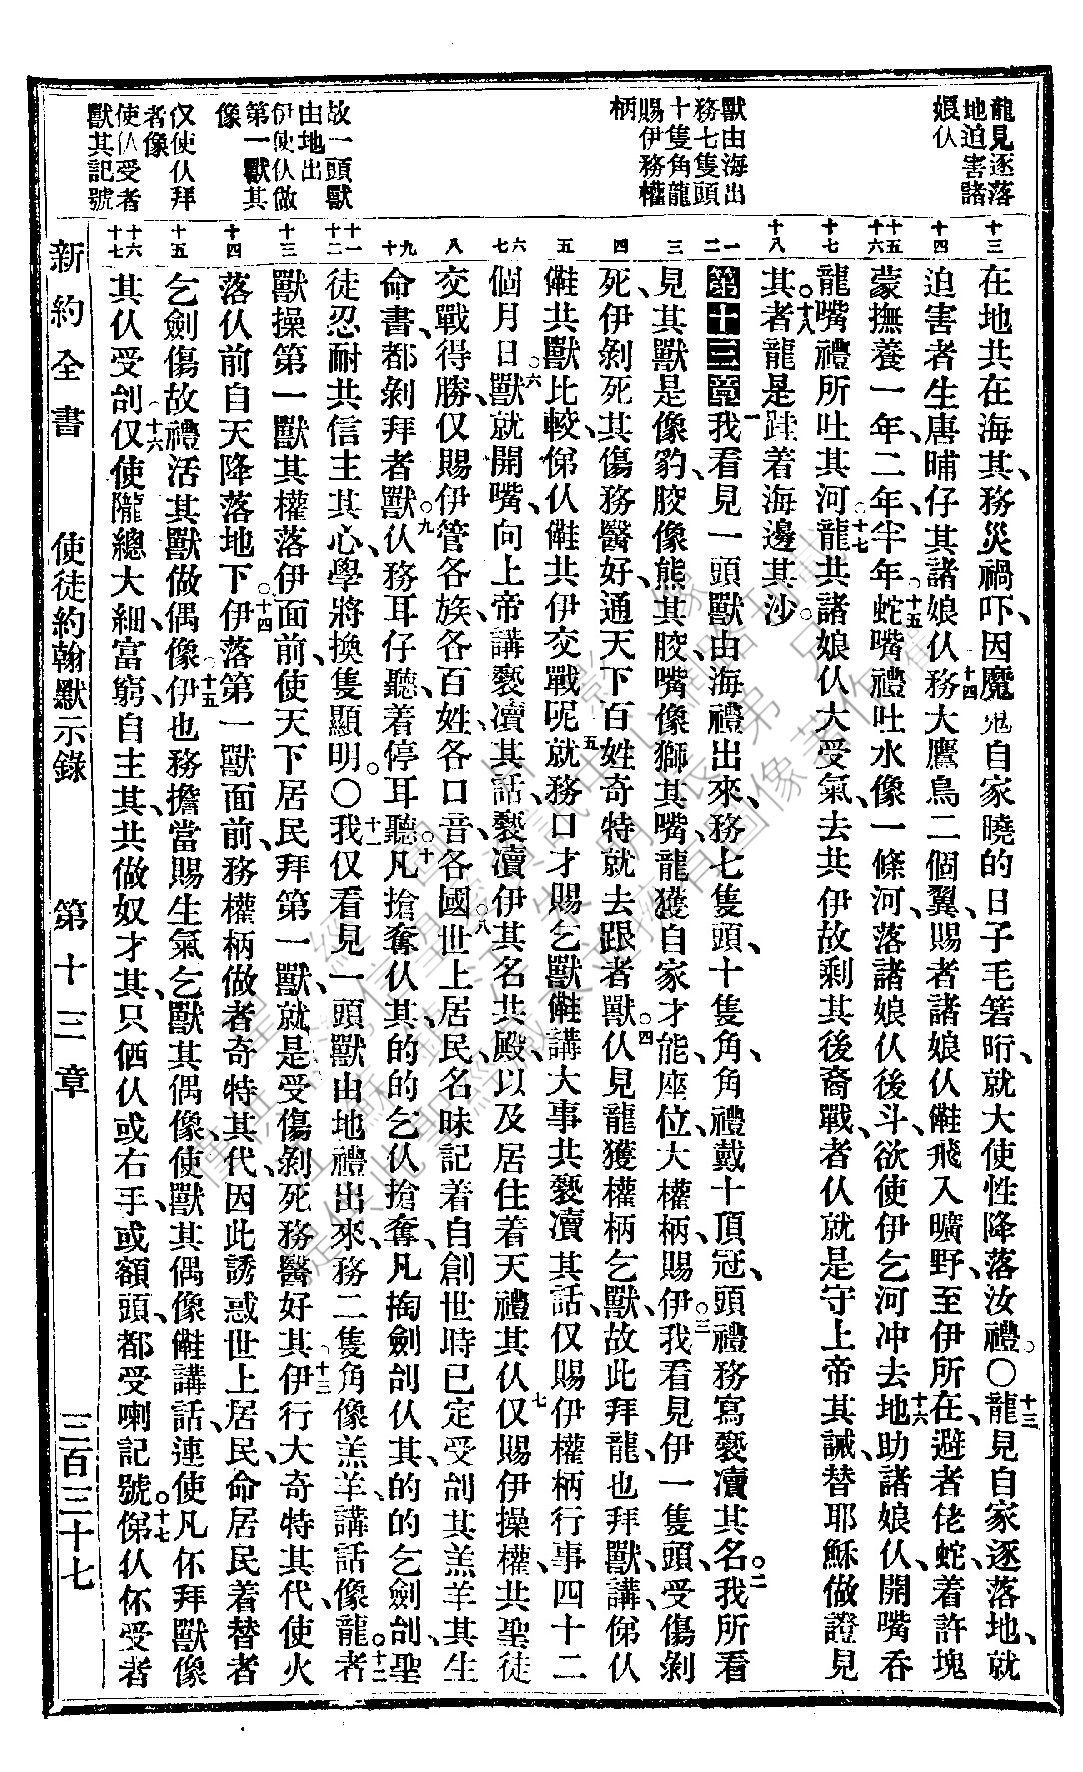 龍見逐落
地迫害諸
娘仈
獸由海出
務七隻頭
十隻角龍
賜伊務權
柄
故一頭獸
由地出
伊使仈做
第一獸其
像
仅使仈拜
者像
使仈受者
獸其記號
十三
十四
十五
十六
十七
十八
一
二
三
四
五
六
七
八
九
十
十一
十二
十三
十四
十五
十六
十七
在地共在海其、務災禍吓、因魔鬼自家曉的日子毛箬𣍐、就大使性降落汝禮。〇十三龍見自家逐落地、就
迫害者生唐晡仔其諸娘仈、十四務大鷹鳥二個翼、賜者諸娘仈㑚飛入曠野、至伊所在、避者佬蛇、着許塊
蒙撫養一年二年半年。十五蛇嘴禮吐水像一條河、落諸娘仈後斗、欲使伊乞河冲去、十六地助諸娘仈、開嘴吞
龍嘴禮所吐其河。十七龍共諸娘仈大受氣、去共伊故剩其後裔戰、者仈就是守上帝其誡、替耶穌做證見
其。十八者龍是跬着海邊其沙。
第十三章一我看見一頭獸由海禮出來、務七隻頭、十隻角、角禮戴十頂冠、頭禮務寫褻瀆其名。二我所看
見其獸是像豹、骹像熊其骹、嘴像獅其嘴、龍獲自家才能座位大權柄、賜伊。三我看見伊一隻頭、受傷剝
死、伊剝死其傷務醫好、通天下百姓奇特就去跟者獸。四仈見龍獲權柄乞獸、故此拜龍、也拜獸講、俤仈
㑚共獸比較、俤仈㑚共伊交戰呢。五就務口才賜乞獸㑚講大事共褻瀆其話、仅賜伊權柄行事四十二
個月日。六獸就開嘴、向上帝講褻瀆其話、褻瀆伊其名共殿、以及居住着天禮其仈。七仅賜伊操權、共聖徒
交戰得勝、仅賜伊管各族各百姓各口音各國。八世上居民、名昧記着自創世時已定受刣其羔羊、其生
命書、都剝拜者獸。九仈務耳仔聽、着停耳聽。十凡搶奪仈其、的的乞仈搶奪、凡掏劍刣仈其、的的乞劍刣、聖
徒忍耐共信主其心、學將換隻顯明。〇十一我仅看見一頭獸由地禮出來、務二隻角像羔羊、講話像龍。十二者
獸操第一獸其權落伊面前、使天下居民拜第一獸、就是受傷剝死務醫好其。十三伊行大奇特其代、使火
落仈前自天降落地下。十四伊落第一獸面前、務權柄做者奇特其代、因此誘惑世上居民、命居民着替者
乞劍傷故禮活其獸做偶像。十五伊也務擔當賜生氣乞獸其偶像、使獸其偶像㑚講話、連使凡伓拜獸像
其仈受刣。十六仅使隴總大細、富窮、自主其、共做奴才其、只俩仈或右手、或額頭、都受喇記號。十七俤仈伓受者
新約全書　使徒約翰默示錄　第十三章　三百三十七